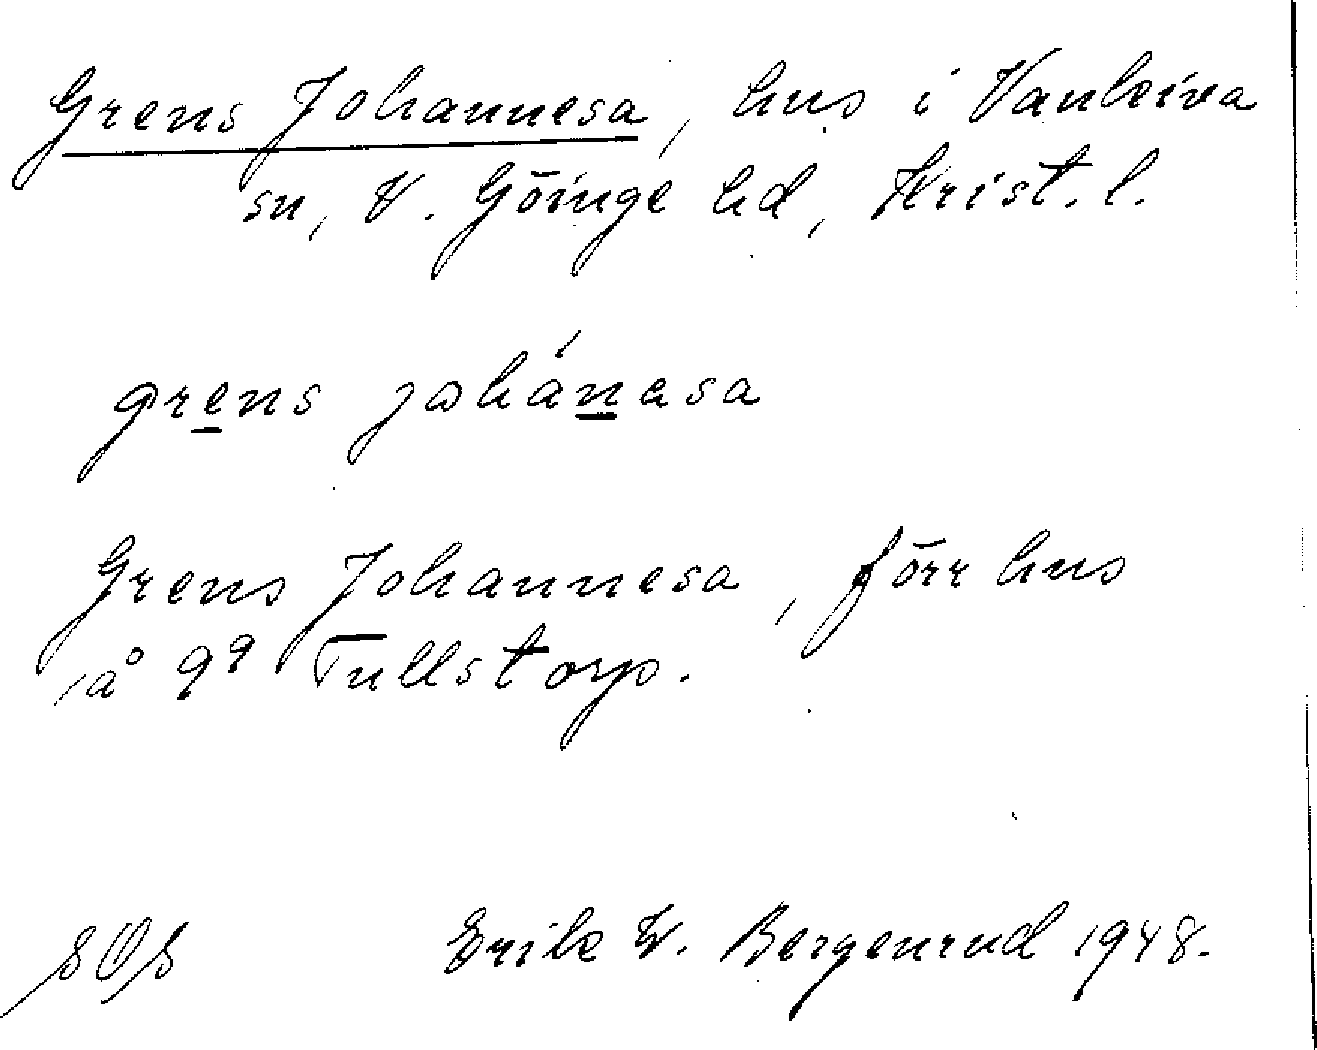 Grens Johannesa, hus i Vankiva
sn, V. Göinge hd, Krist. l.
grens johánesa
Grens Johannesa, förr hus
å 9⁹ Tullstorp.
Erik W. Bergenrud 1948.